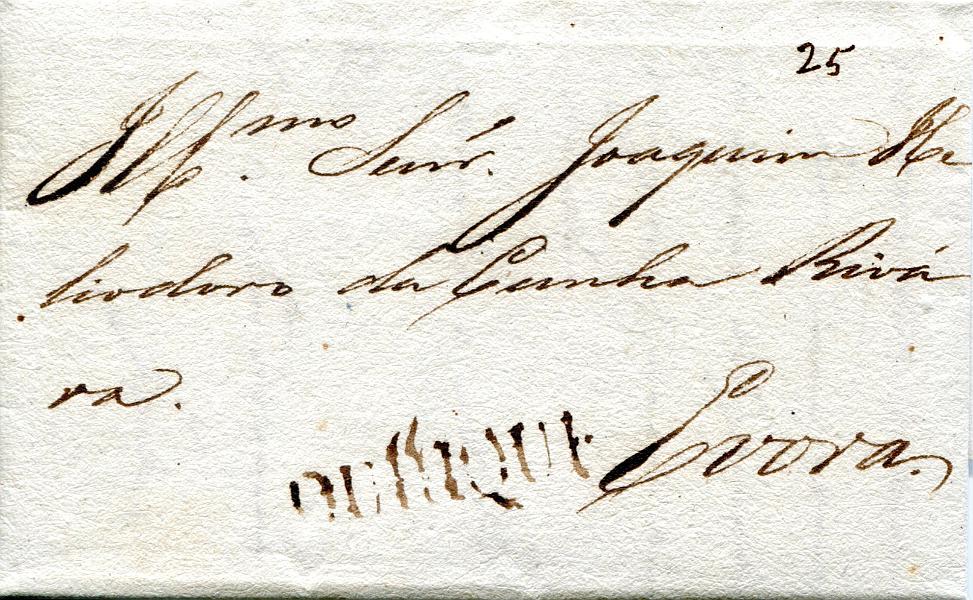 25
Illmo. Senr. Joaquim He
liodoro da Cunha Rivá
ra.
OURIQUE
Evora.